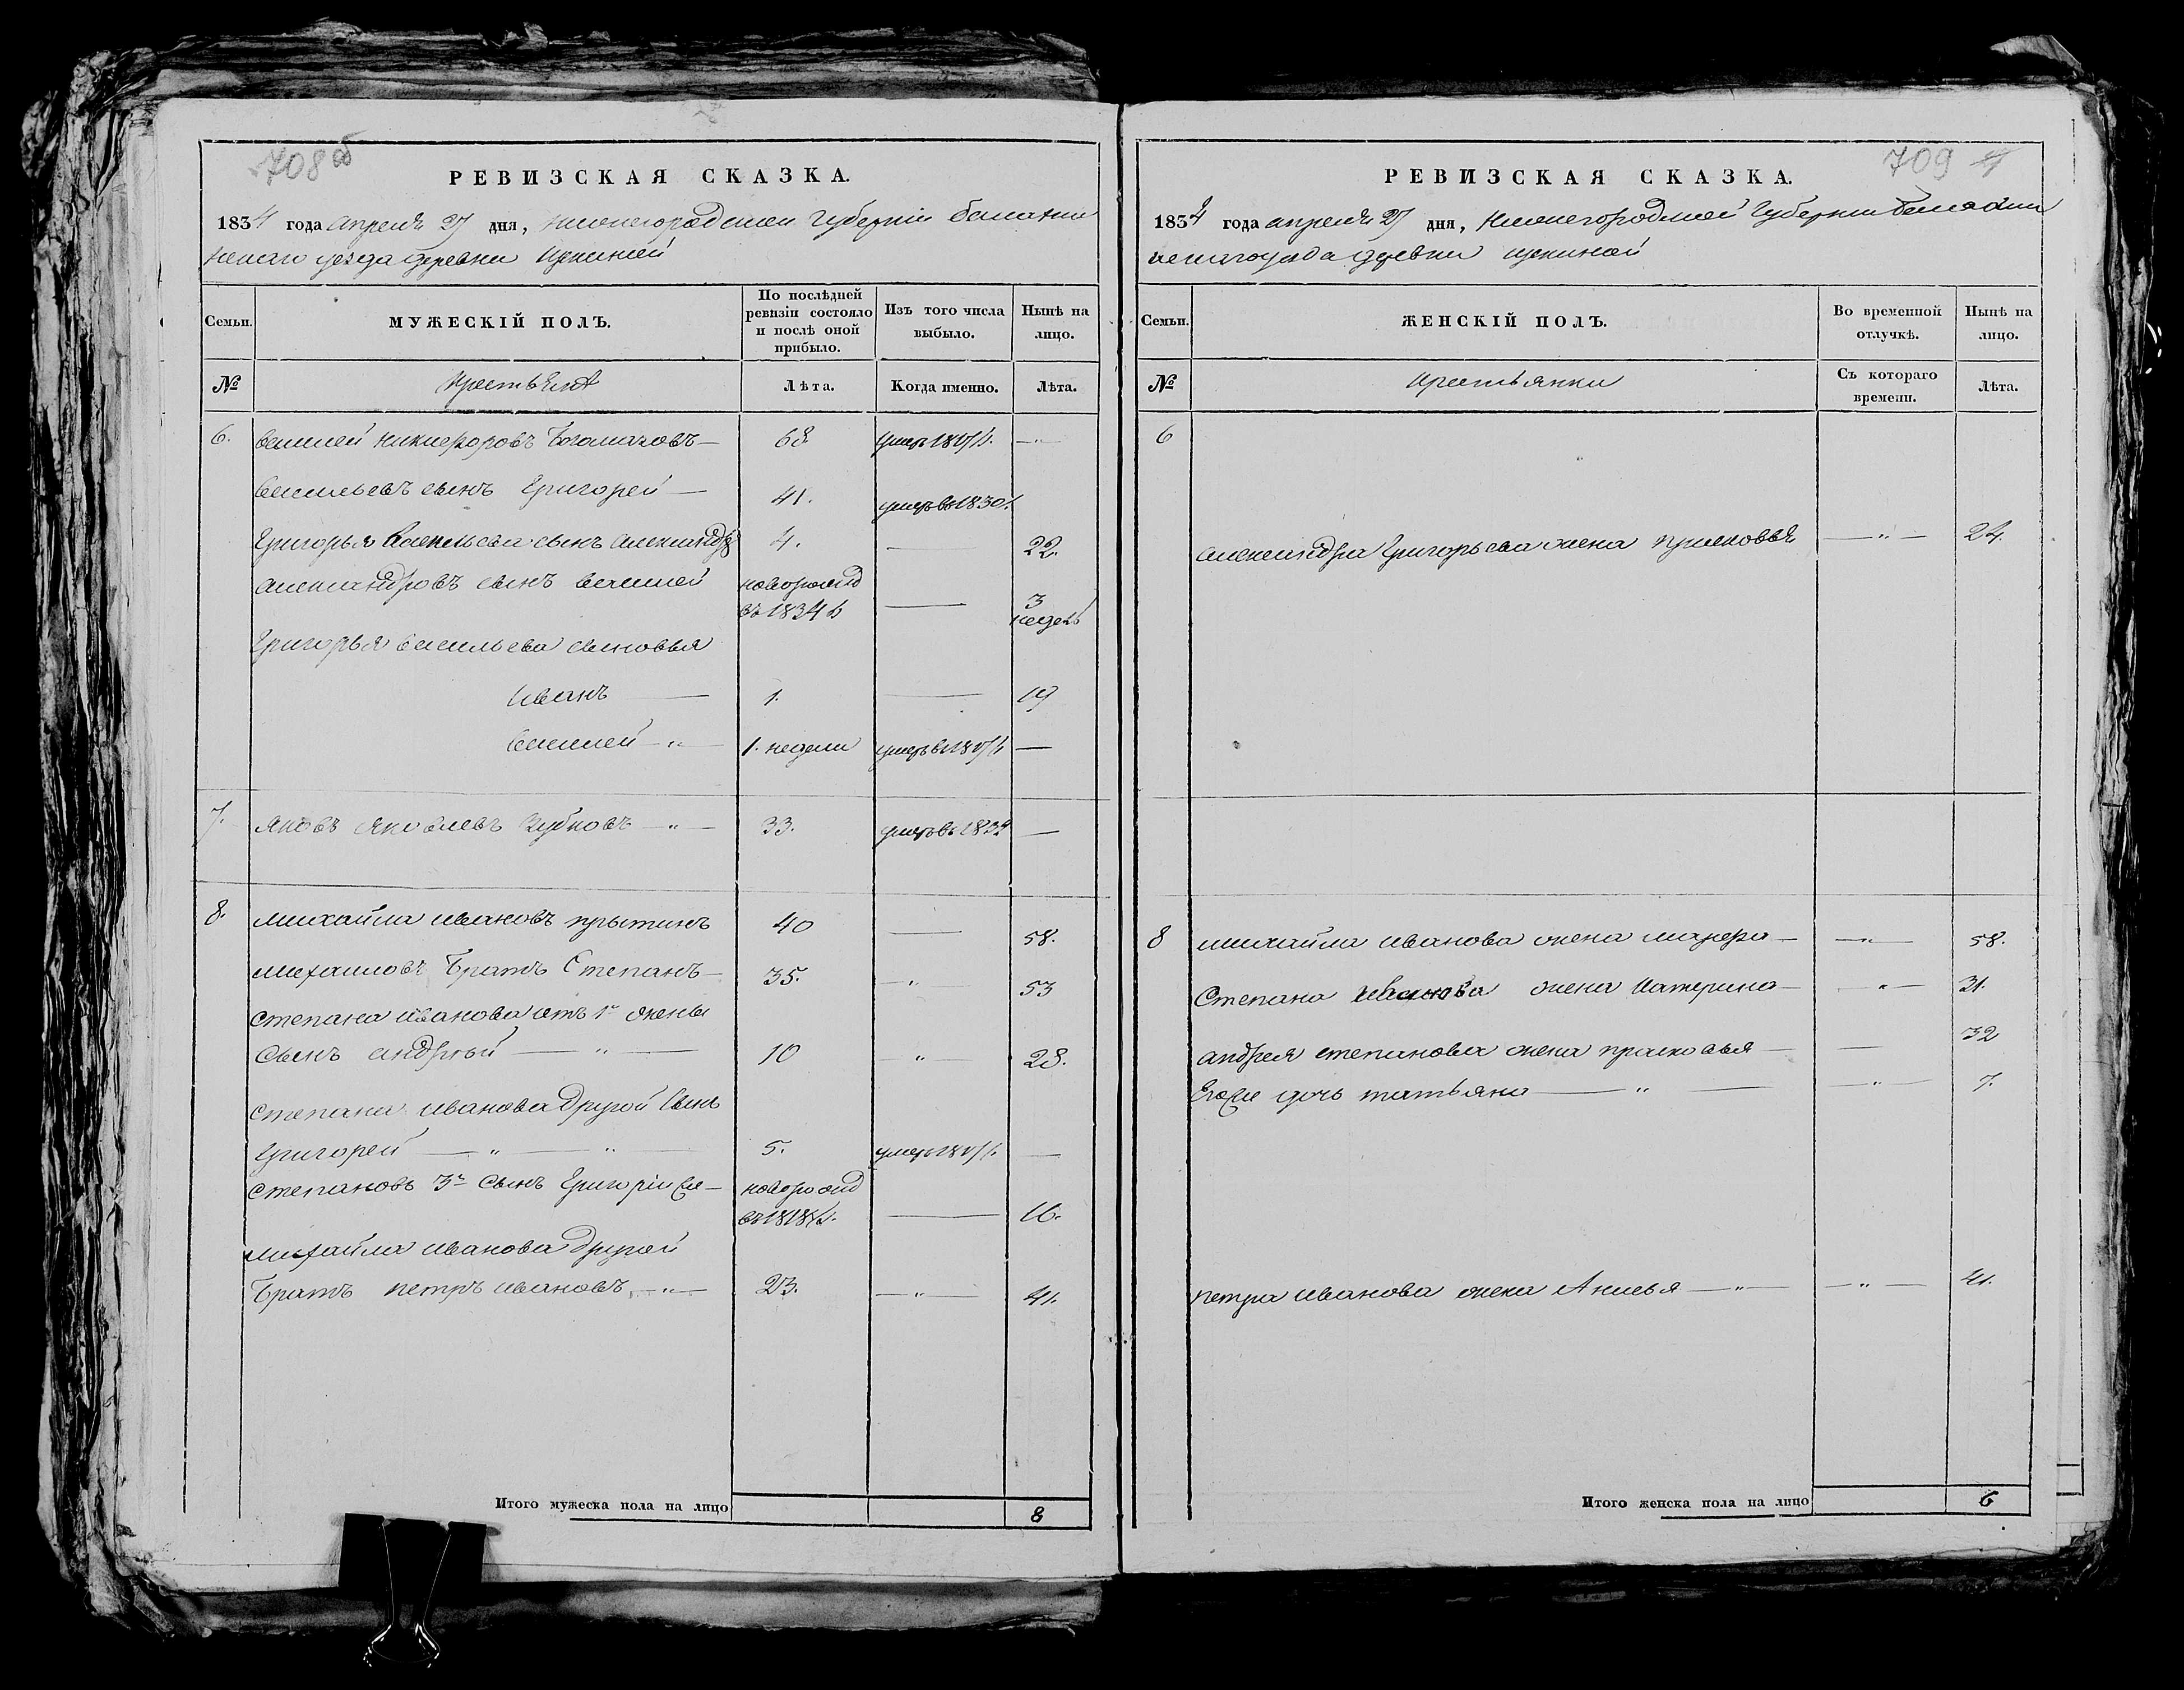 708 об
РЕВИЗСКАЯ СКАЗКА.
1834 года апреля 27 дня, нижегородской губернии балахнин
скаго уезда деревни
Семьи.
МУЖЕСКІЙ ПОЛЪ.
По послѣдней ревизіи состояло и послѣ оной прибыло.
Изъ того числа выбыло.
Нынѣ на лицо.
№
Крестьяня
Лѣта.
Когда именно.
Лѣта.
6. Василей никифоровъ 68.
Васильевъ сынъ Григорей — 41. умеръ въ 1830
Григорья Васильева сынъ александръ 4. — 22.
александровъ сынъ василей новорожд въ 1834 — 3 недель
Григорья васильева сыновья
Иванъ — 1. — 19
Василей — 1. недели —
7. яковъ яковлевъ зубковъ — 33. —
8. михайла ивановъ прытинъ 40 — 58.
михаиловъ братъ Степанъ — 35. — 53
степана иванова отъ 1й жены
сынъ андрѣй — 10 28.
степана иванова другой сынъ
Григорей — 5. —
степановъ 3й сынъ Григорій же — новорожд въ 1818 — 16.
михайла иванова другой
братъ петръ ивановъ — 23. — 41.
Итого мужеска пола на лицо 8
709
РЕВИЗСКАЯ СКАЗКА.
1834 года апреля 27 дня, нижегородской губернии балахнин
скаго уезда деревни
Семьи.
ЖЕНСКІЙ ПОЛЪ.
Во временной отлучкѣ.
Нынѣ на лицо.
№
Крестьянки
Съ котораго времени.
Лѣта.
6
александра Григорьева жена прасковья — 24.
8 михайла иванова жена — 58.
Степана иванова жена катерина — 31.
андрея степанова жена прасковья — 32
его же дочь татьяна — 7.
петра иванова жена Анисья — 41.
Итого женска пола на лицо 6